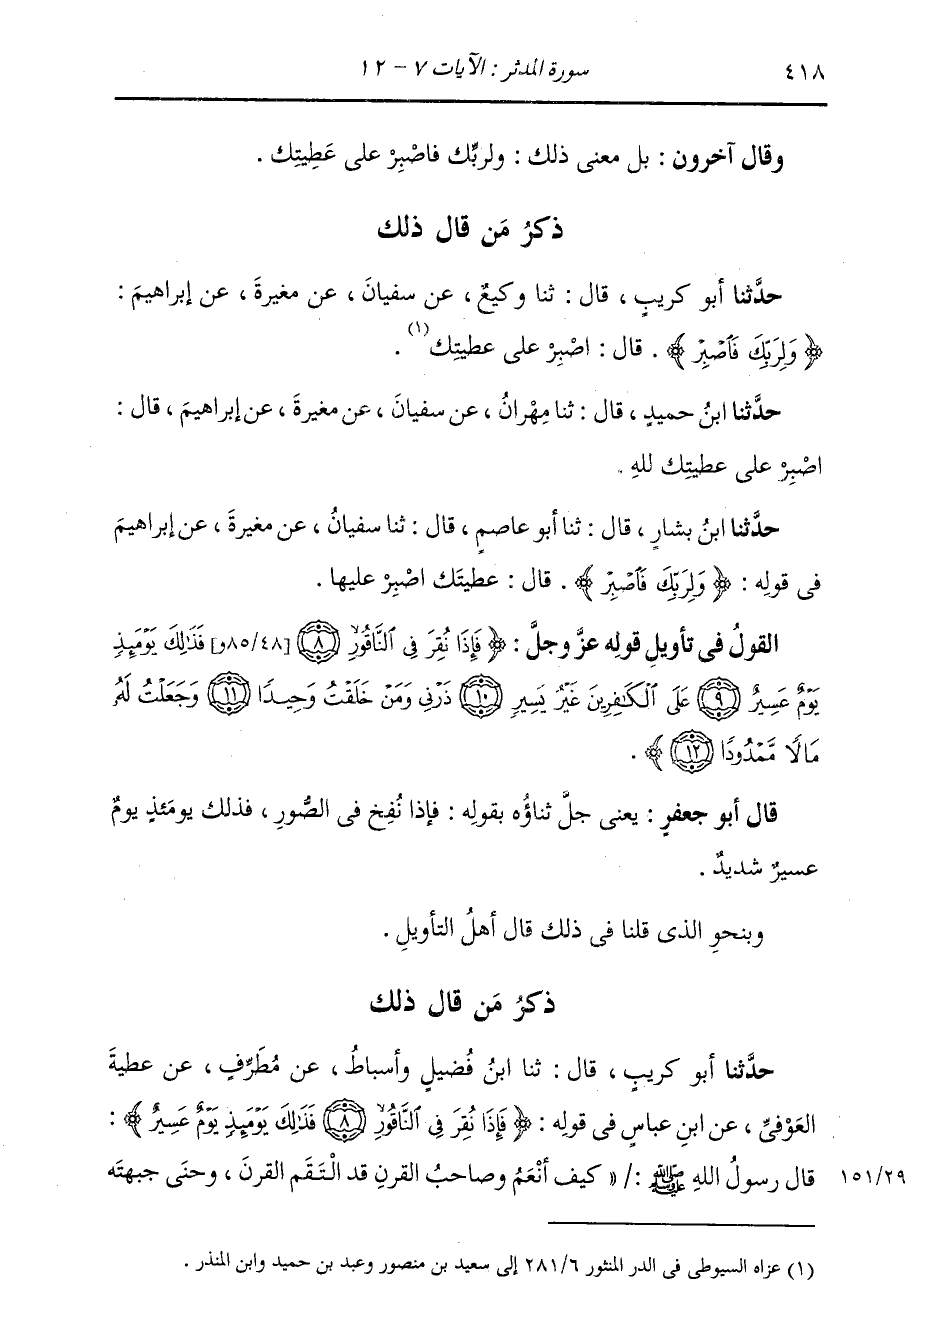 ٤١٨ سورة المدثر : الآيات ٧ - ١٢
وقال آخرون : بل معنى ذلك : ولربِّك فاصْبِرْ على عَطِيتِك .
ذكرُ مَن قال ذلك
حدَّثنا أبو كريبٍ ، قال : ثنا وكيعٌ ، عن سفيانَ ، عن مغيرةَ ، عن إبراهيمَ :
﴿ وَلِرَبِّكَ فَاصْبِرْ ﴾ . قال : اصْبِرْ على عطيتِك (١) .
حدَّثنا ابنُ حميدٍ ، قال : ثنا مِهْرانُ ، عن سفيانَ ، عن مغيرةَ ، عن إبراهيمَ ، قال :
اصْبِرْ على عطيتِك للهِ .
حدَّثنا ابنُ بشارٍ ، قال : ثنا أبو عاصمٍ ، قال : ثنا سفيانُ ، عن مغيرةَ ، عن إبراهيمَ
فى قولِه : ﴿ وَلِرَبِّكَ فَاصْبِرْ ﴾ . قال : عطيتَك اصْبِرْ عليها .
القولُ فى تأويلِ قولِه عزَّ وجلَّ : ﴿ فَإِذَا نُقِرَ فِى ٱلنَّاقُورِ ٨ [٨٥/٤٨و] فَذَٰلِكَ يَوْمَئِذٍ
يَوْمٌ عَسِيرٌ ٩ عَلَى ٱلْكَٰفِرِينَ غَيْرُ يَسِيرٍ ١٠ ذَرْنِى وَمَنْ خَلَقْتُ وَحِيدًا ١١ وَجَعَلْتُ لَهُۥ
مَالًا مَّمْدُودًا ١٢ ﴾ .
قال أبو جعفرٍ : يعنى جلَّ ثناؤُه بقولِه : فإذا نُفِخ فى الصُّورِ ، فذلك يومَئذٍ يومٌ
عسيرٌ شديدٌ .
وبنحوِ الذى قلنا فى ذلك قال أهلُ التأويلِ .
ذكرُ مَن قال ذلك
حدَّثنا أبو كريبٍ ، قال : ثنا ابنُ فُضيلٍ وأسباطُ ، عن مُطَرِّفٍ ، عن عطيةَ
العَوْفىِّ ، عن ابنِ عباسٍ فى قولِه : ﴿ فَإِذَا نُقِرَ فِى ٱلنَّاقُورِ ٨ فَذَٰلِكَ يَوْمَئِذٍ يَوْمٌ عَسِيرٌ ﴾ :
١٥١/٢٩ قال رسولُ اللهِ ﷺ :/ « كيف أنْعَمُ وصاحبُ القرنِ قد الْتَقَم القرنَ ، وحنَى جبهتَه
(١) عزاه السيوطى فى الدر المنثور ٢٨١/٦ إلى سعيد بن منصور وعبد بن حميد وابن المنذر .